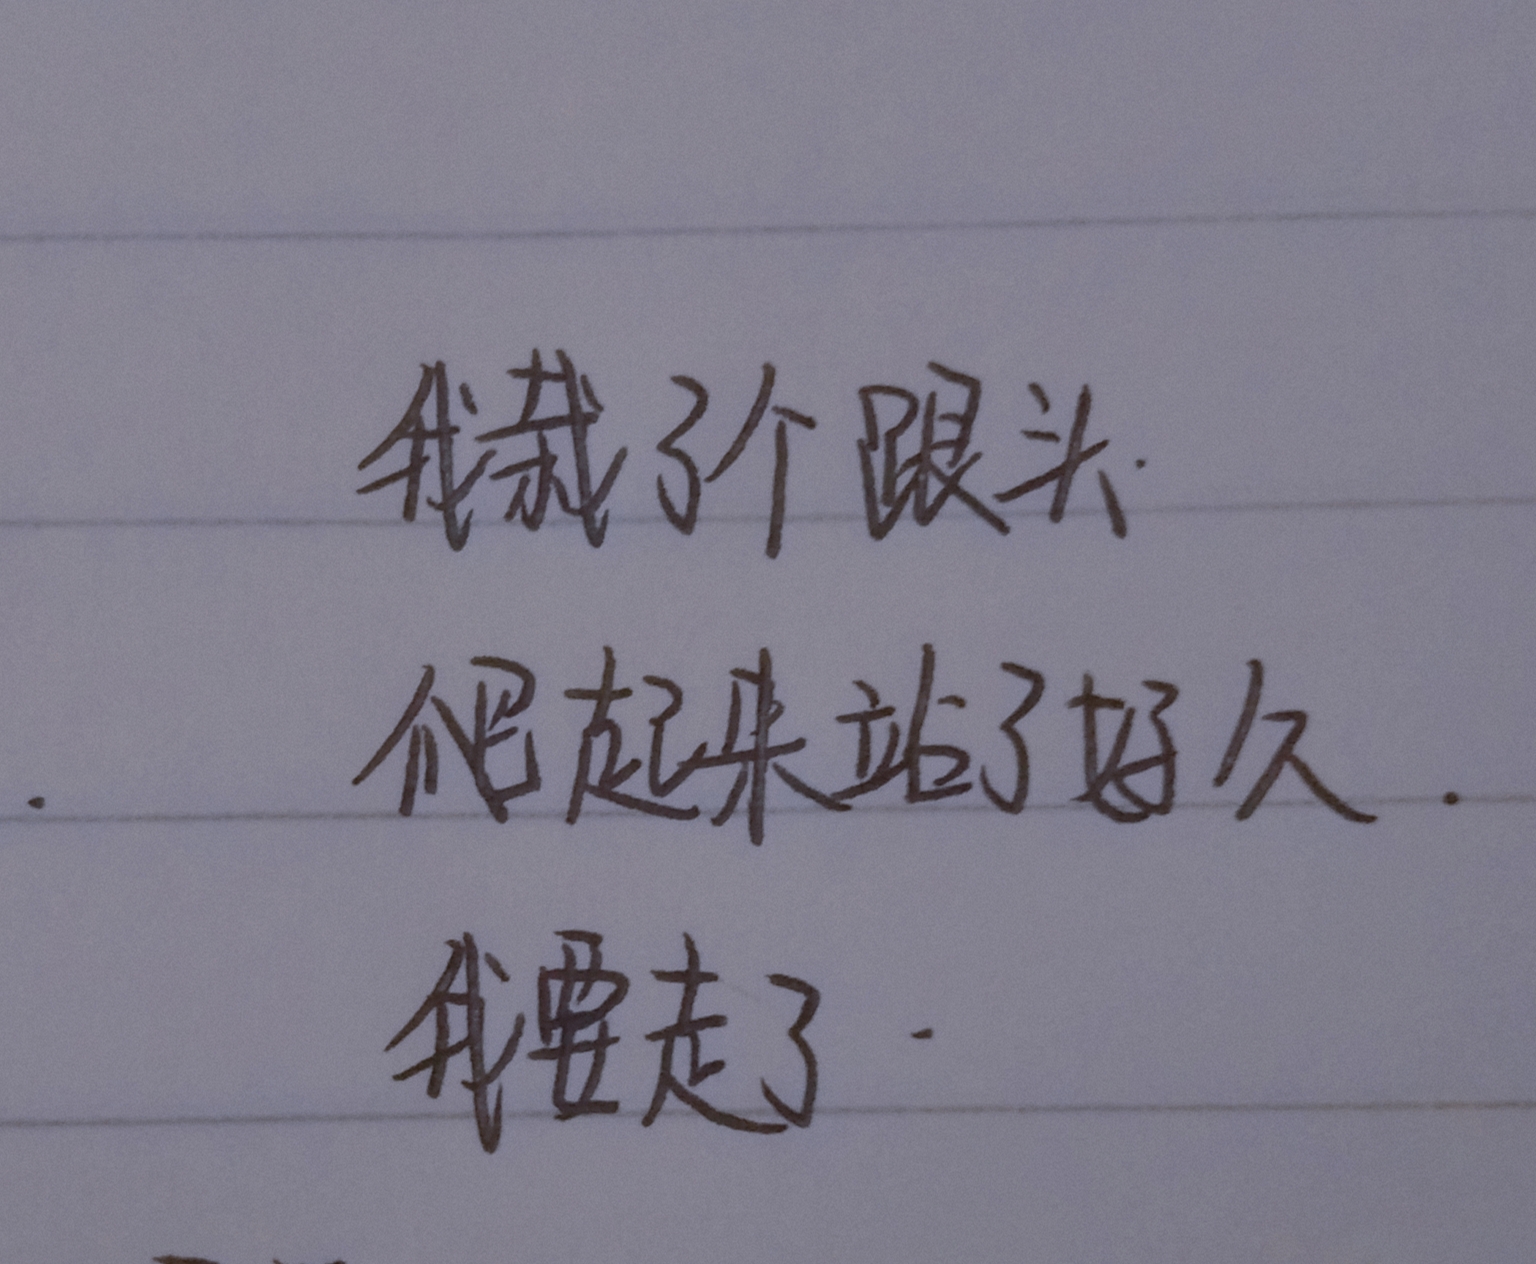 我栽了个跟头.
爬起来站了好久.
我要走了.